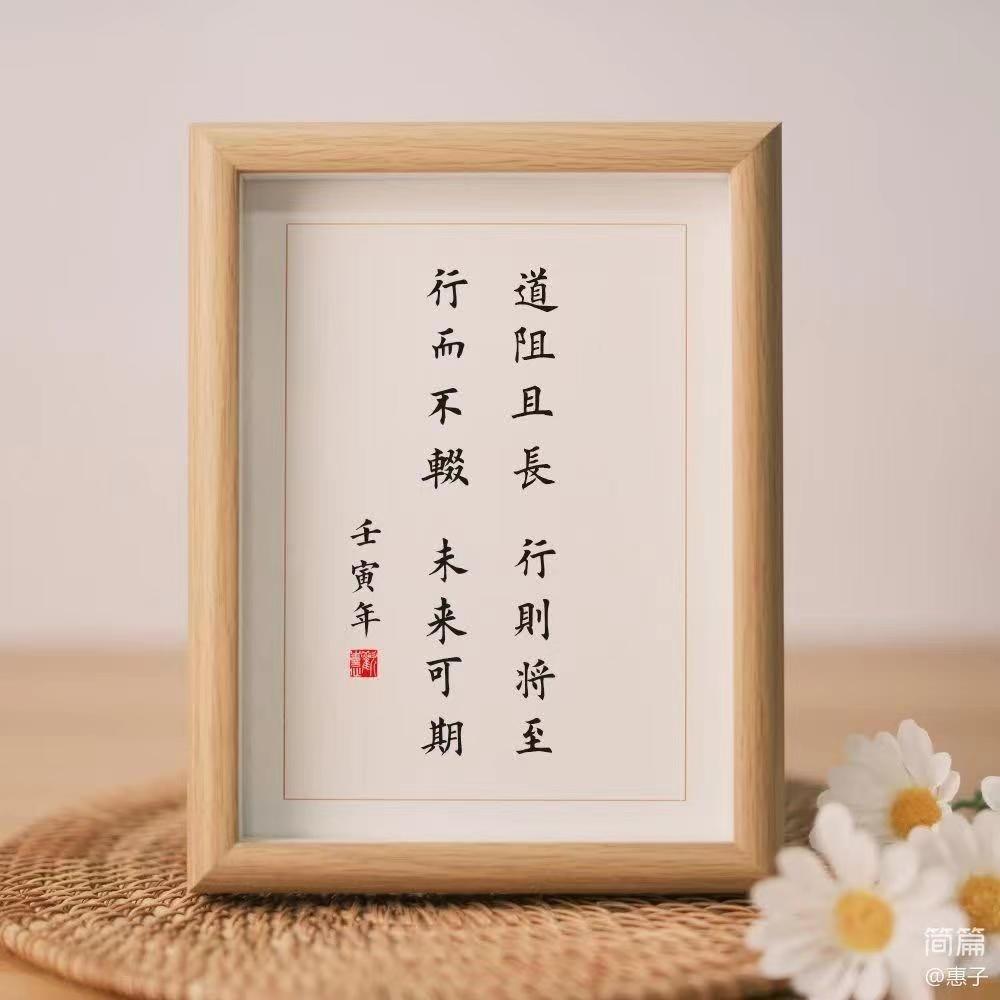 道阻且長 行則将至
行而不輟 未来可期
壬寅年
简篇
@惠子